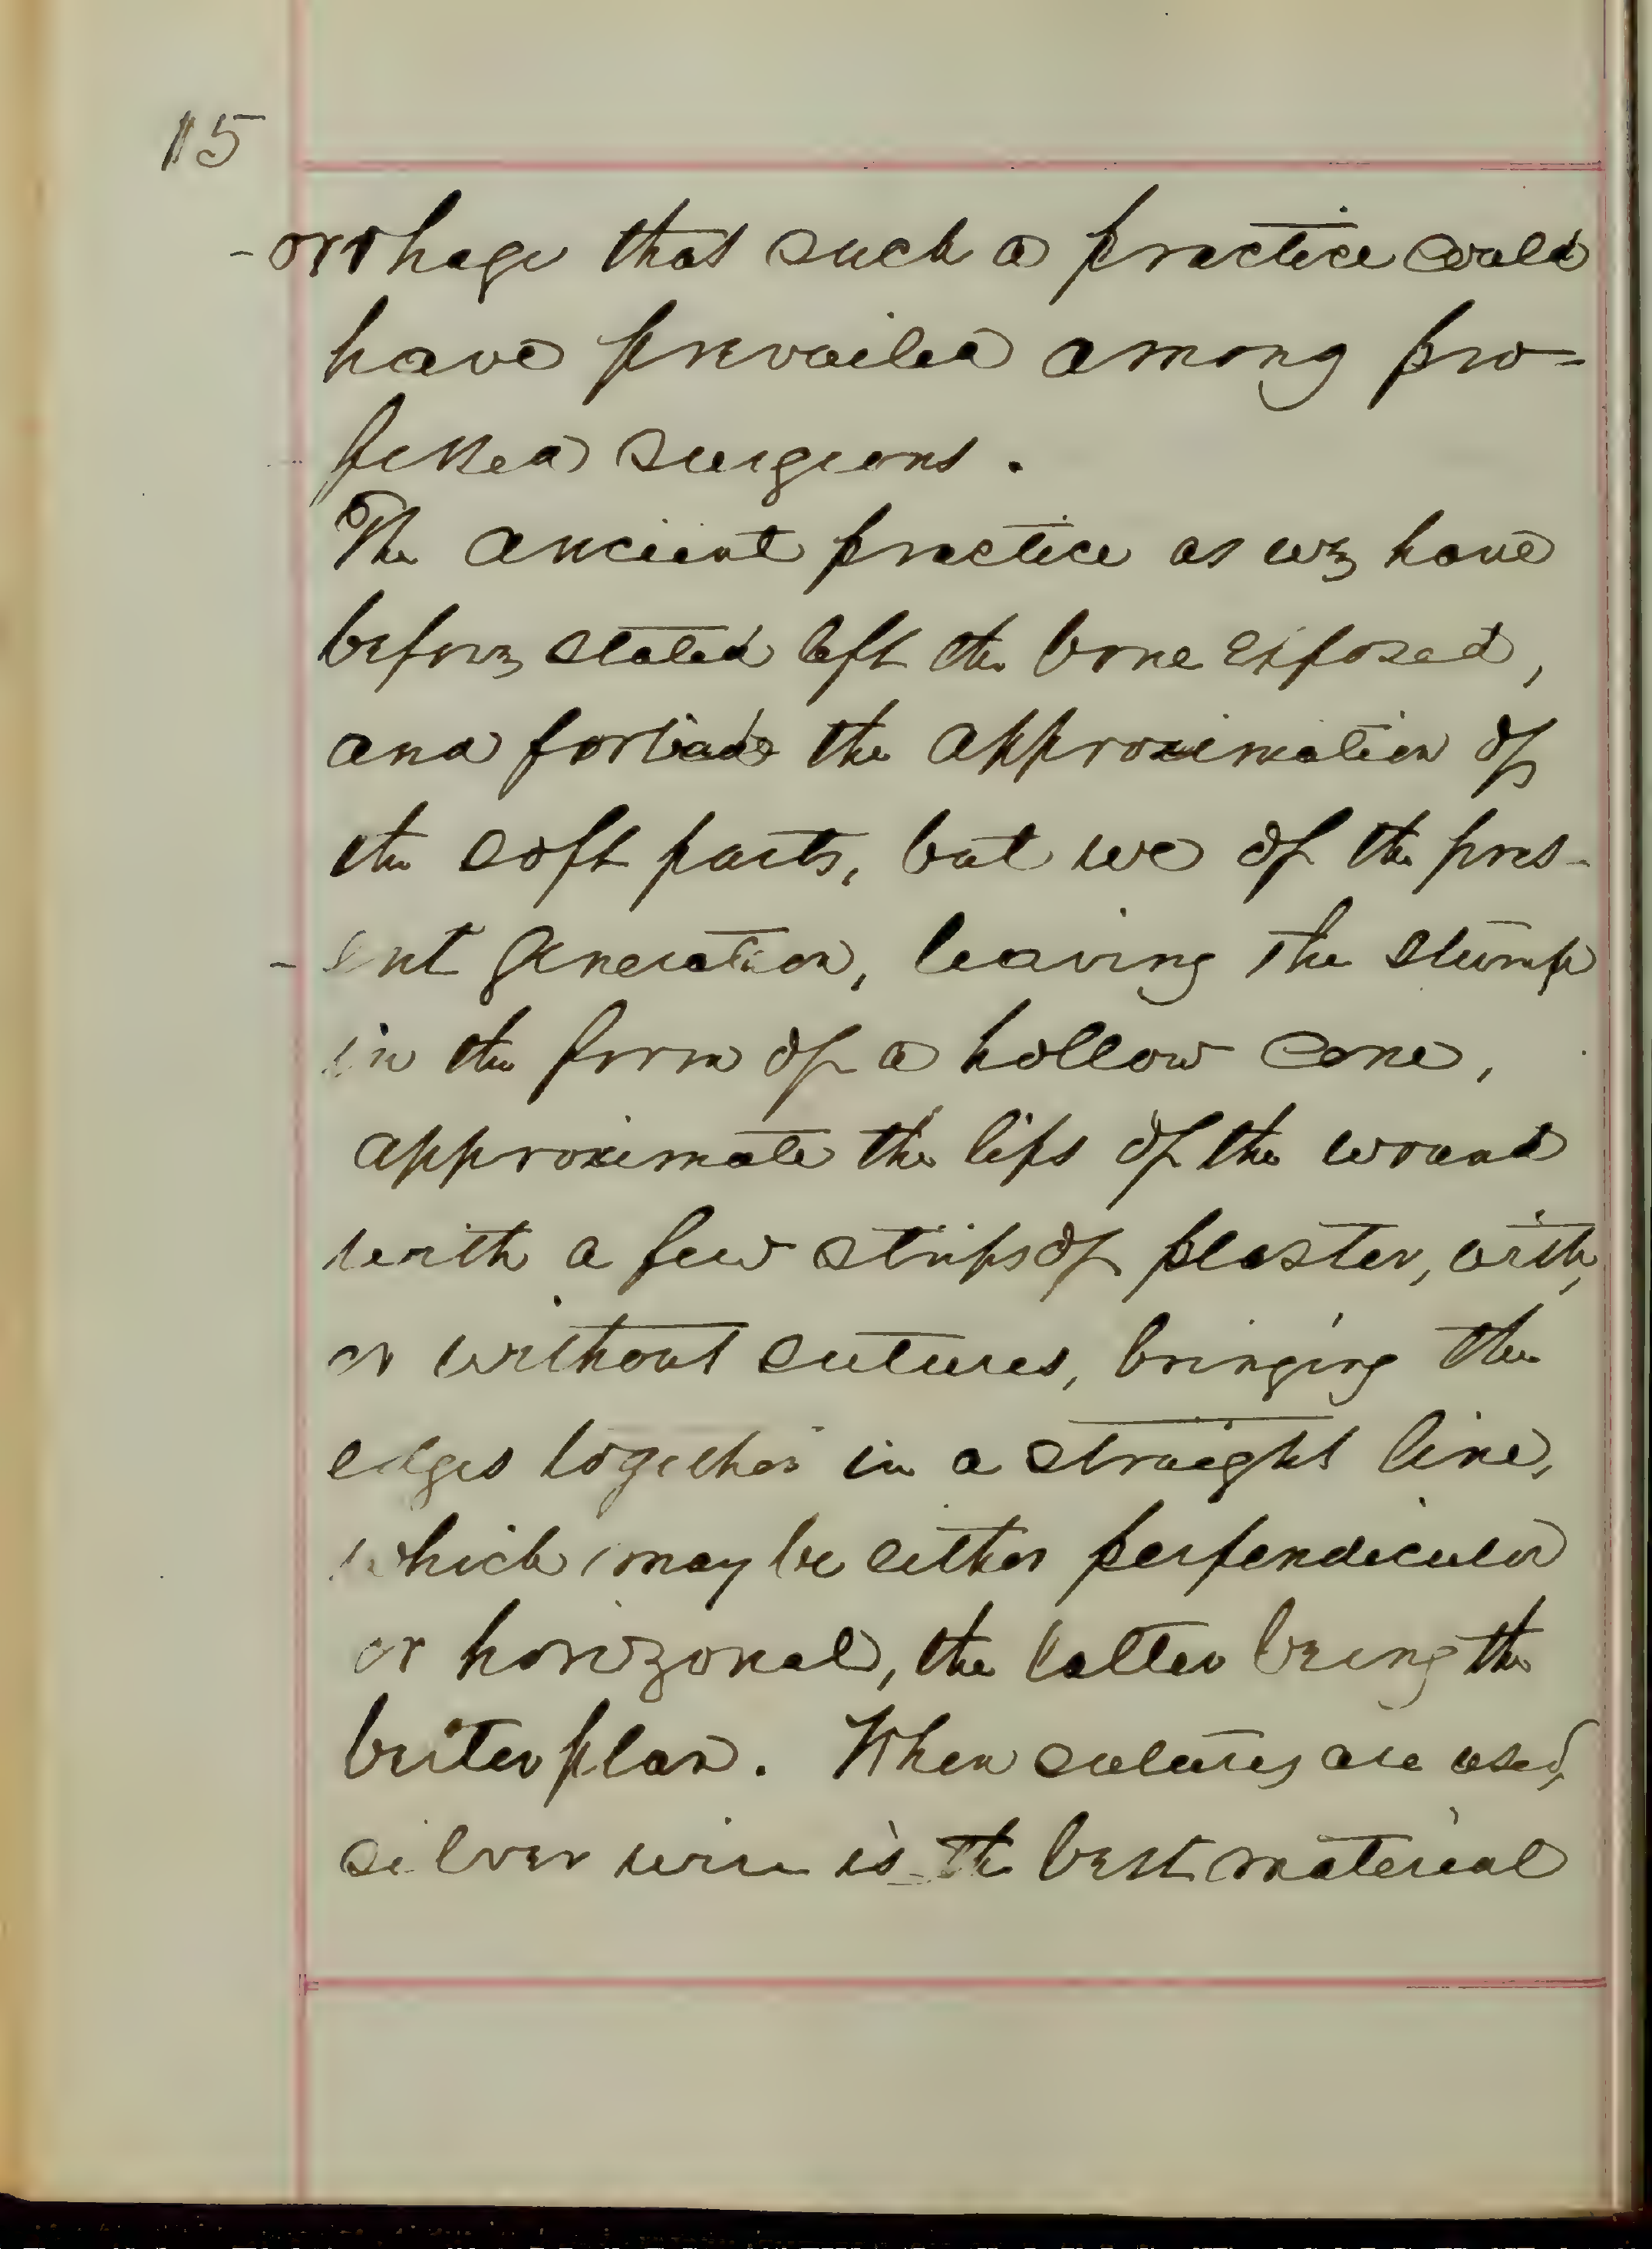 15
-orrhage that such a practice could
have prevailed among pro-
fessed surgeons.
The ancient practice as we have
before stated left the bone exposed,
and forbade the approximation of
the soft parts, but we of the pres-
-ent generation, leaving the stump
in the form of a hollow cone,
approximate the lips of the wound
with a few strips of plaster, with,
or without sutures, bringing the
edges together in a straight line,
which may be either perpendicular
or horizonal, the latter being the
better plan. When sutures are used,
silver wire is the best material